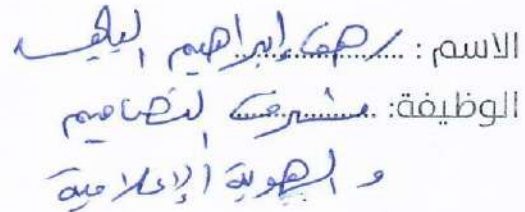 الاسم: رهف إبراهيم
الوظيفة: مشرف التصاميم
و الهوية الإعلامية